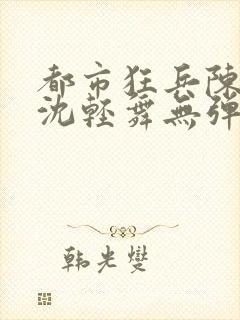 都市狂兵陳
沈輕舞無彈
韩光燮